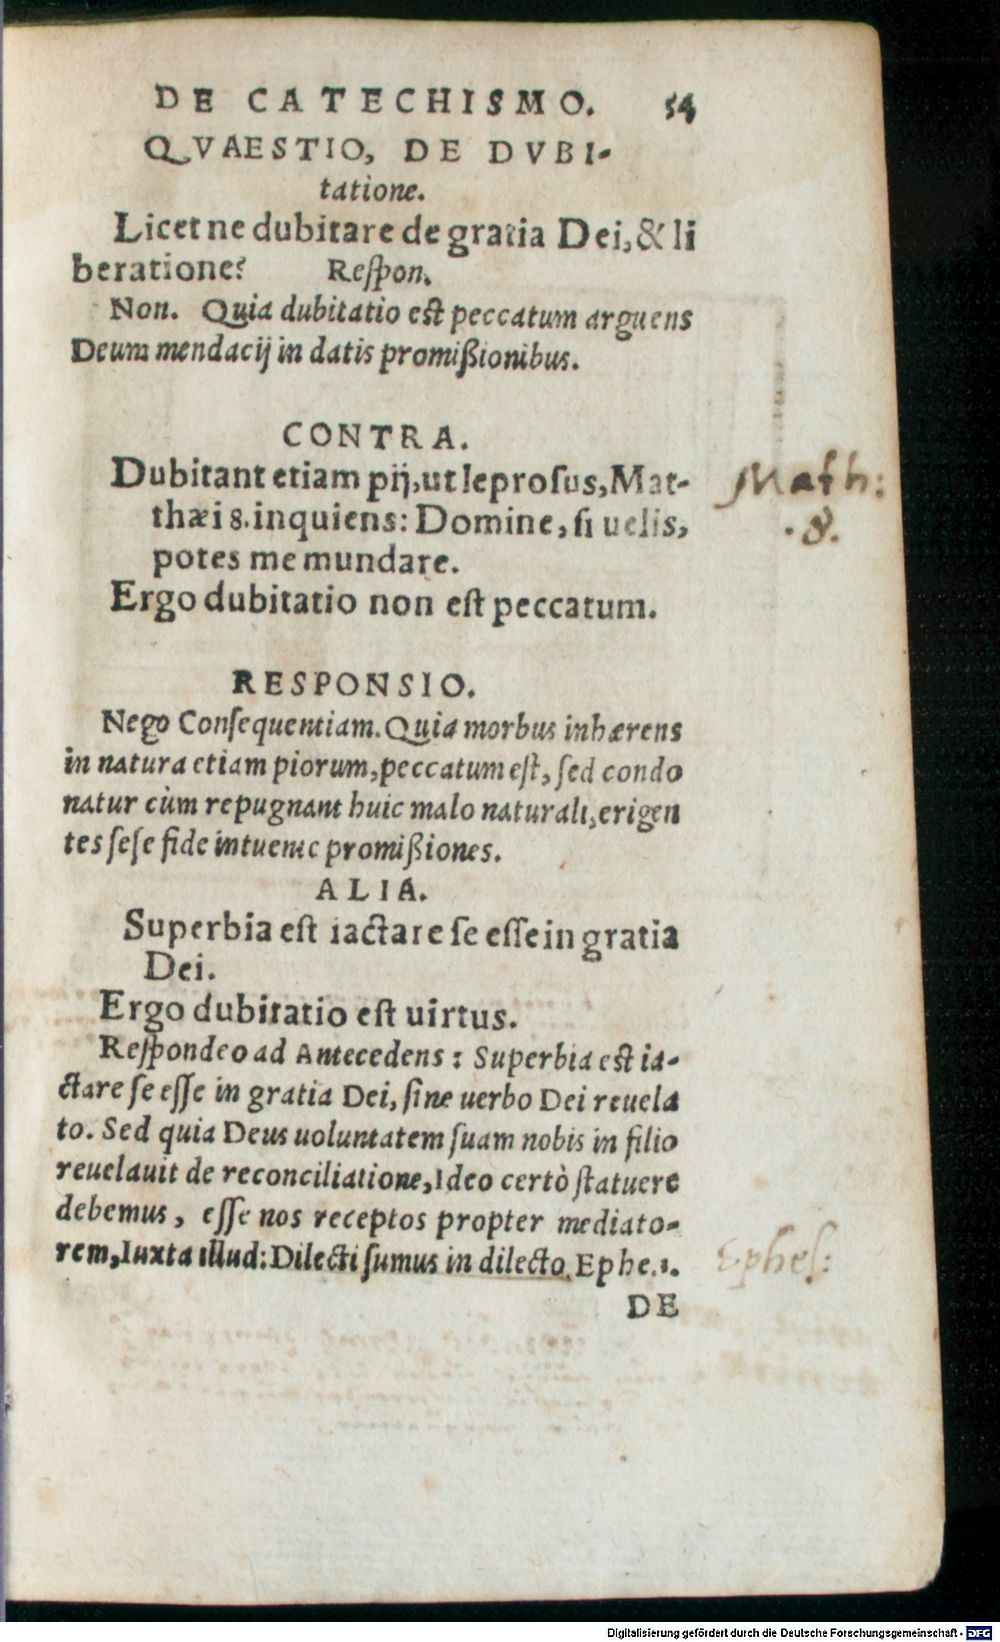 DE CATECHISMO. 54
QVAESTIO, DE DVBI-
tatione.
Licet ne dubitare de gratia Dei, & li
beratione? Respon.
Non. Quia dubitatio est peccatum arguens
Deum mendacij in datis promißionibus.
CONTRA.
Dubitant etiam pij, ut leprosus, Mat-
thæi 8. inquiens: Domine, si uelis,
potes me mundare.
Ergo dubitatio non est peccatum.
Math:
.8.
RESPONSIO.
Nego Consequentiam. Quia morbus inhærens
in natura etiam piorum, peccatum est, sed condo
natur cùm repugnant huic malo naturali, erigen
tes sese fide intuente promißiones.
ALIA.
Superbia est iactare se esse in gratia
Dei.
Ergo dubitatio est uirtus.
Respondeo ad Antecedens: Superbia est ia-
ctare se esse in gratia Dei, sine uerbo Dei reuela
to. Sed quia Deus uoluntatem suam nobis in filio
reuelauit de reconciliatione, Ideo certò statuere
debemus, esse nos receptos propter mediato-
rem, Iuxta illud: Dilecti sumus in dilecto. Ephe.1.
Ephes:
DE
Digitalisierung gefördert durch die Deutsche Forschungsgemeinschaft - DFG